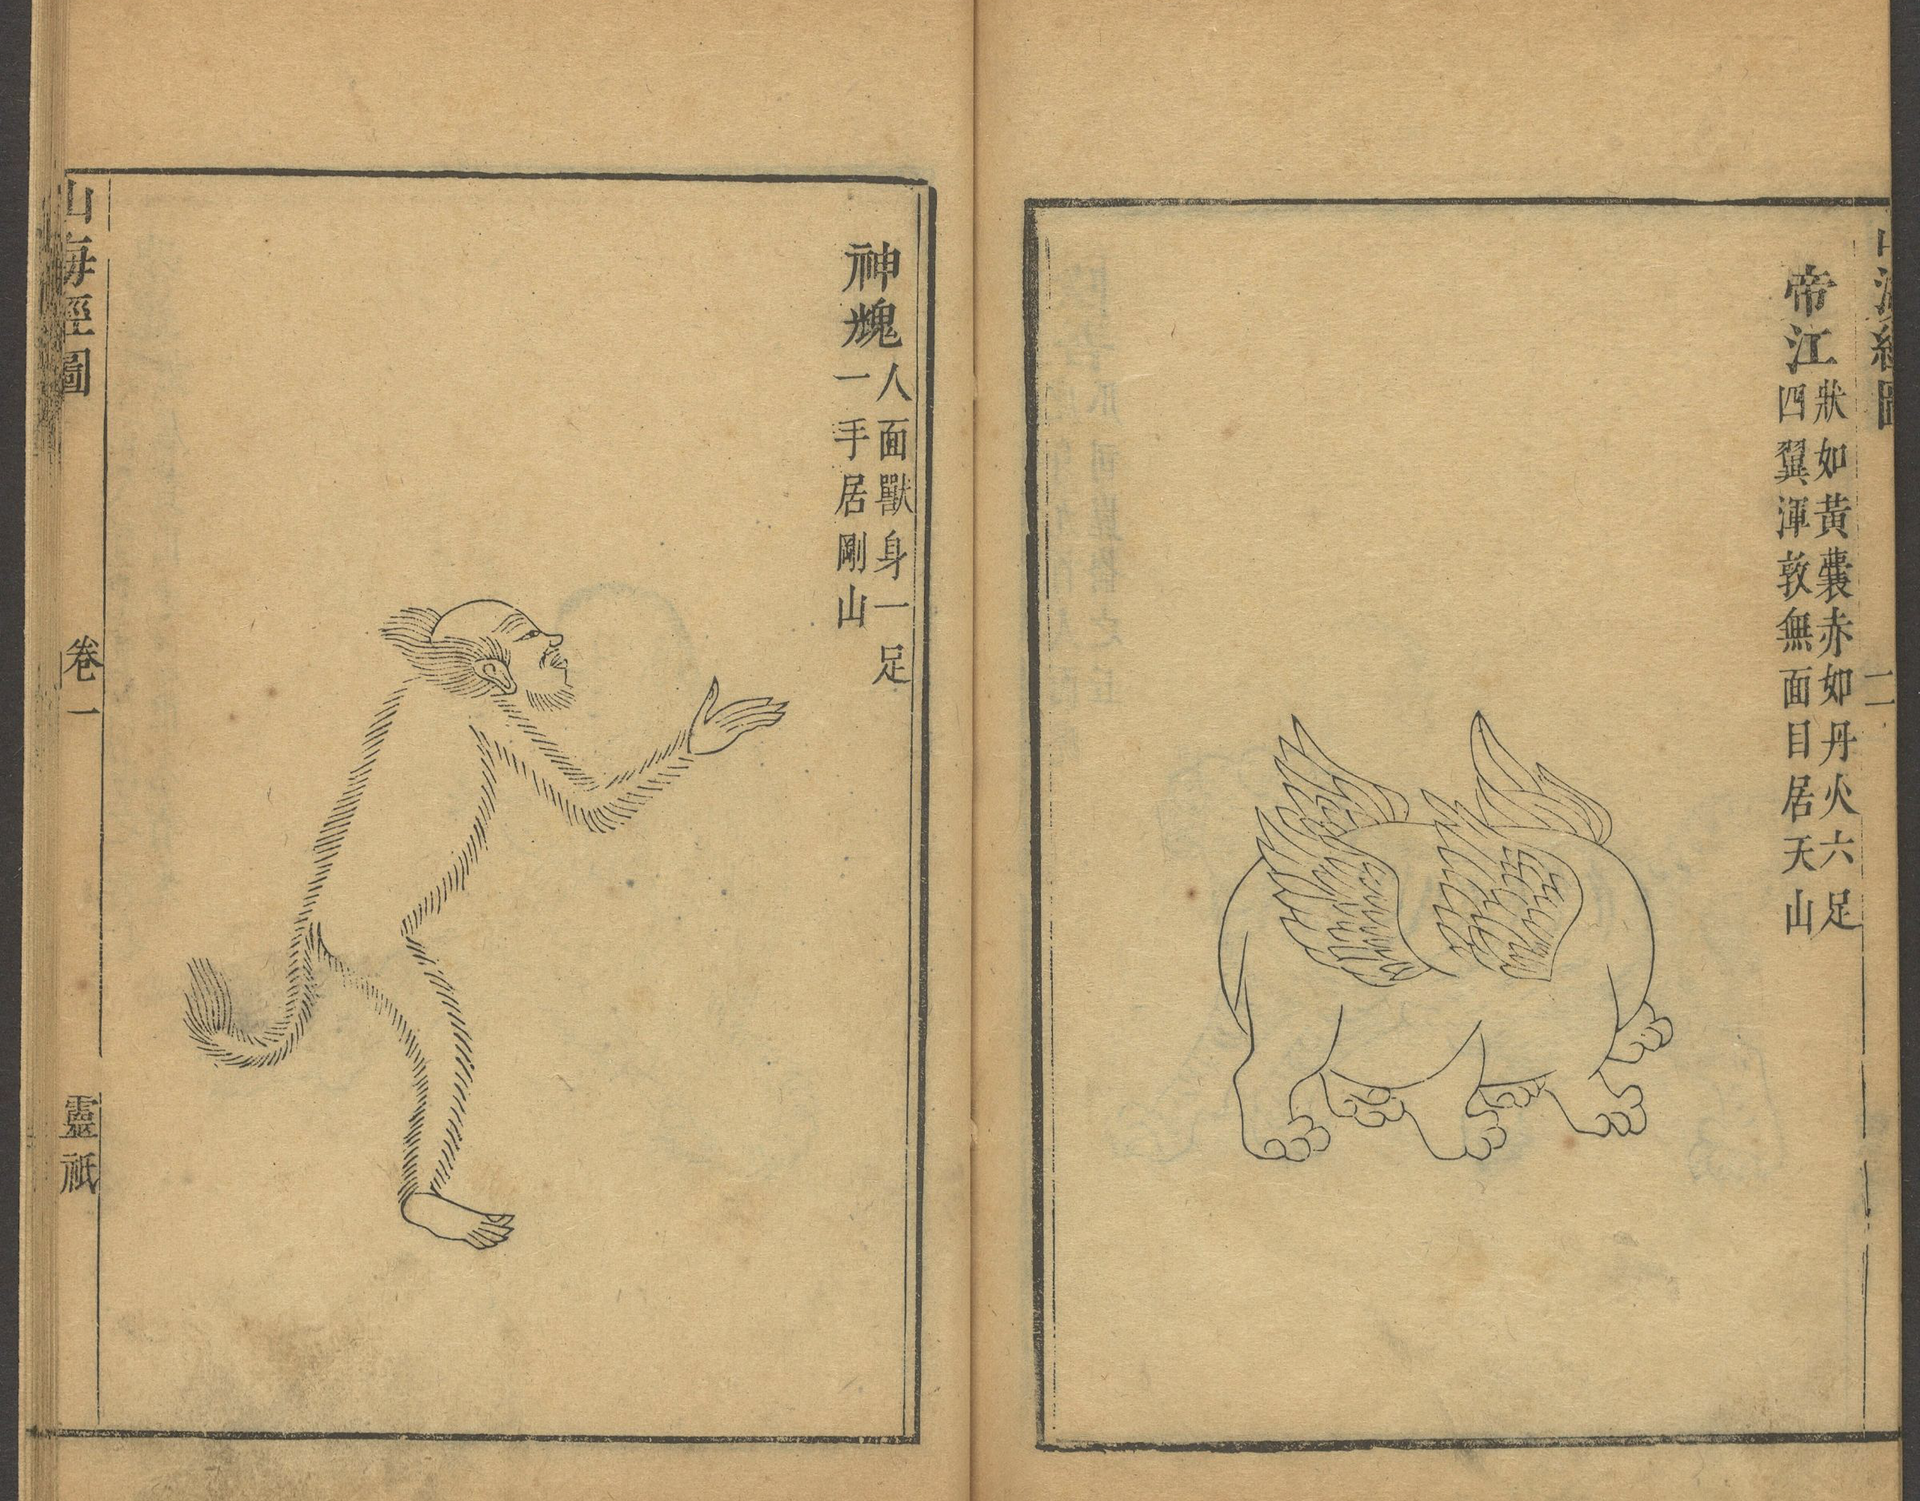 帝江
狀如黃囊赤如丹火六足
四翼渾敦無面目居天山
二
神䰠
人面獸身一足
一手居剛山
山海經圖
卷一
靈祇